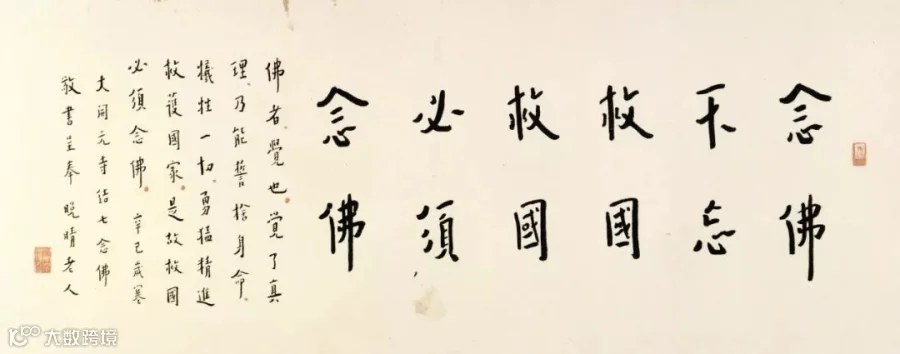 念佛
不忘
救國
救國
必須
念佛
佛者覺也覺了真
理乃能誓捨身命
犧牲一切勇猛精進
救護國家是故救國
必須念佛 辛巳歲寒
大開元寺結七念佛
敬書呈奉 晚晴老人
大数跨境